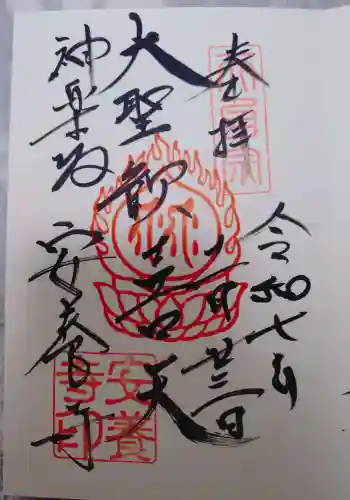 奉拝
令和七年
月廿三日
大聖歓喜天
神楽坂
安養寺
安養
寺印